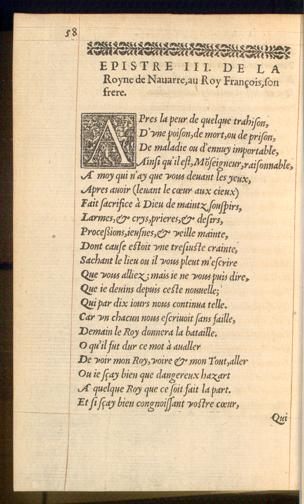 58
EPISTRE III. DE LA
Royne de Nauarre, au Roy François, son
frere.
APres la peur de quelque trahison,
D'vne poison, de mort, ou de prison,
De maladie ou d'ennuy importable,
Ainsi qu'il est, Mõseigneur, raisonnable,
A moy qui n'ay que vous deuant les yeux,
Apres auoir (leuant le cœur aux cieux)
Fait sacrifice à Dieu de maintz souspirs,
Larmes, & crys, prieres, & desirs,
Processions, ieusnes, & veille mainte,
Dont cause estoit vne tresiuste crainte,
Sachant le lieu ou il vous pleut m'escrire
Que vous alliez; mais ie ne vous puis dire,
Que ie deuins depuis ceste nouuelle;
Qui par dix iours nous continua telle.
Car vn chacun nous escriuoit sans faille,
Demain le Roy donnera la bataille.
O qu'il fut dur ce mot à aualler
De voir mon Roy, voire & mon Tout, aller
Ou ie sçay bien que dangereux hazart
A quelque Roy que ce soit fait la part.
Et si sçay bien congnoissant vostre cœur,
Qui